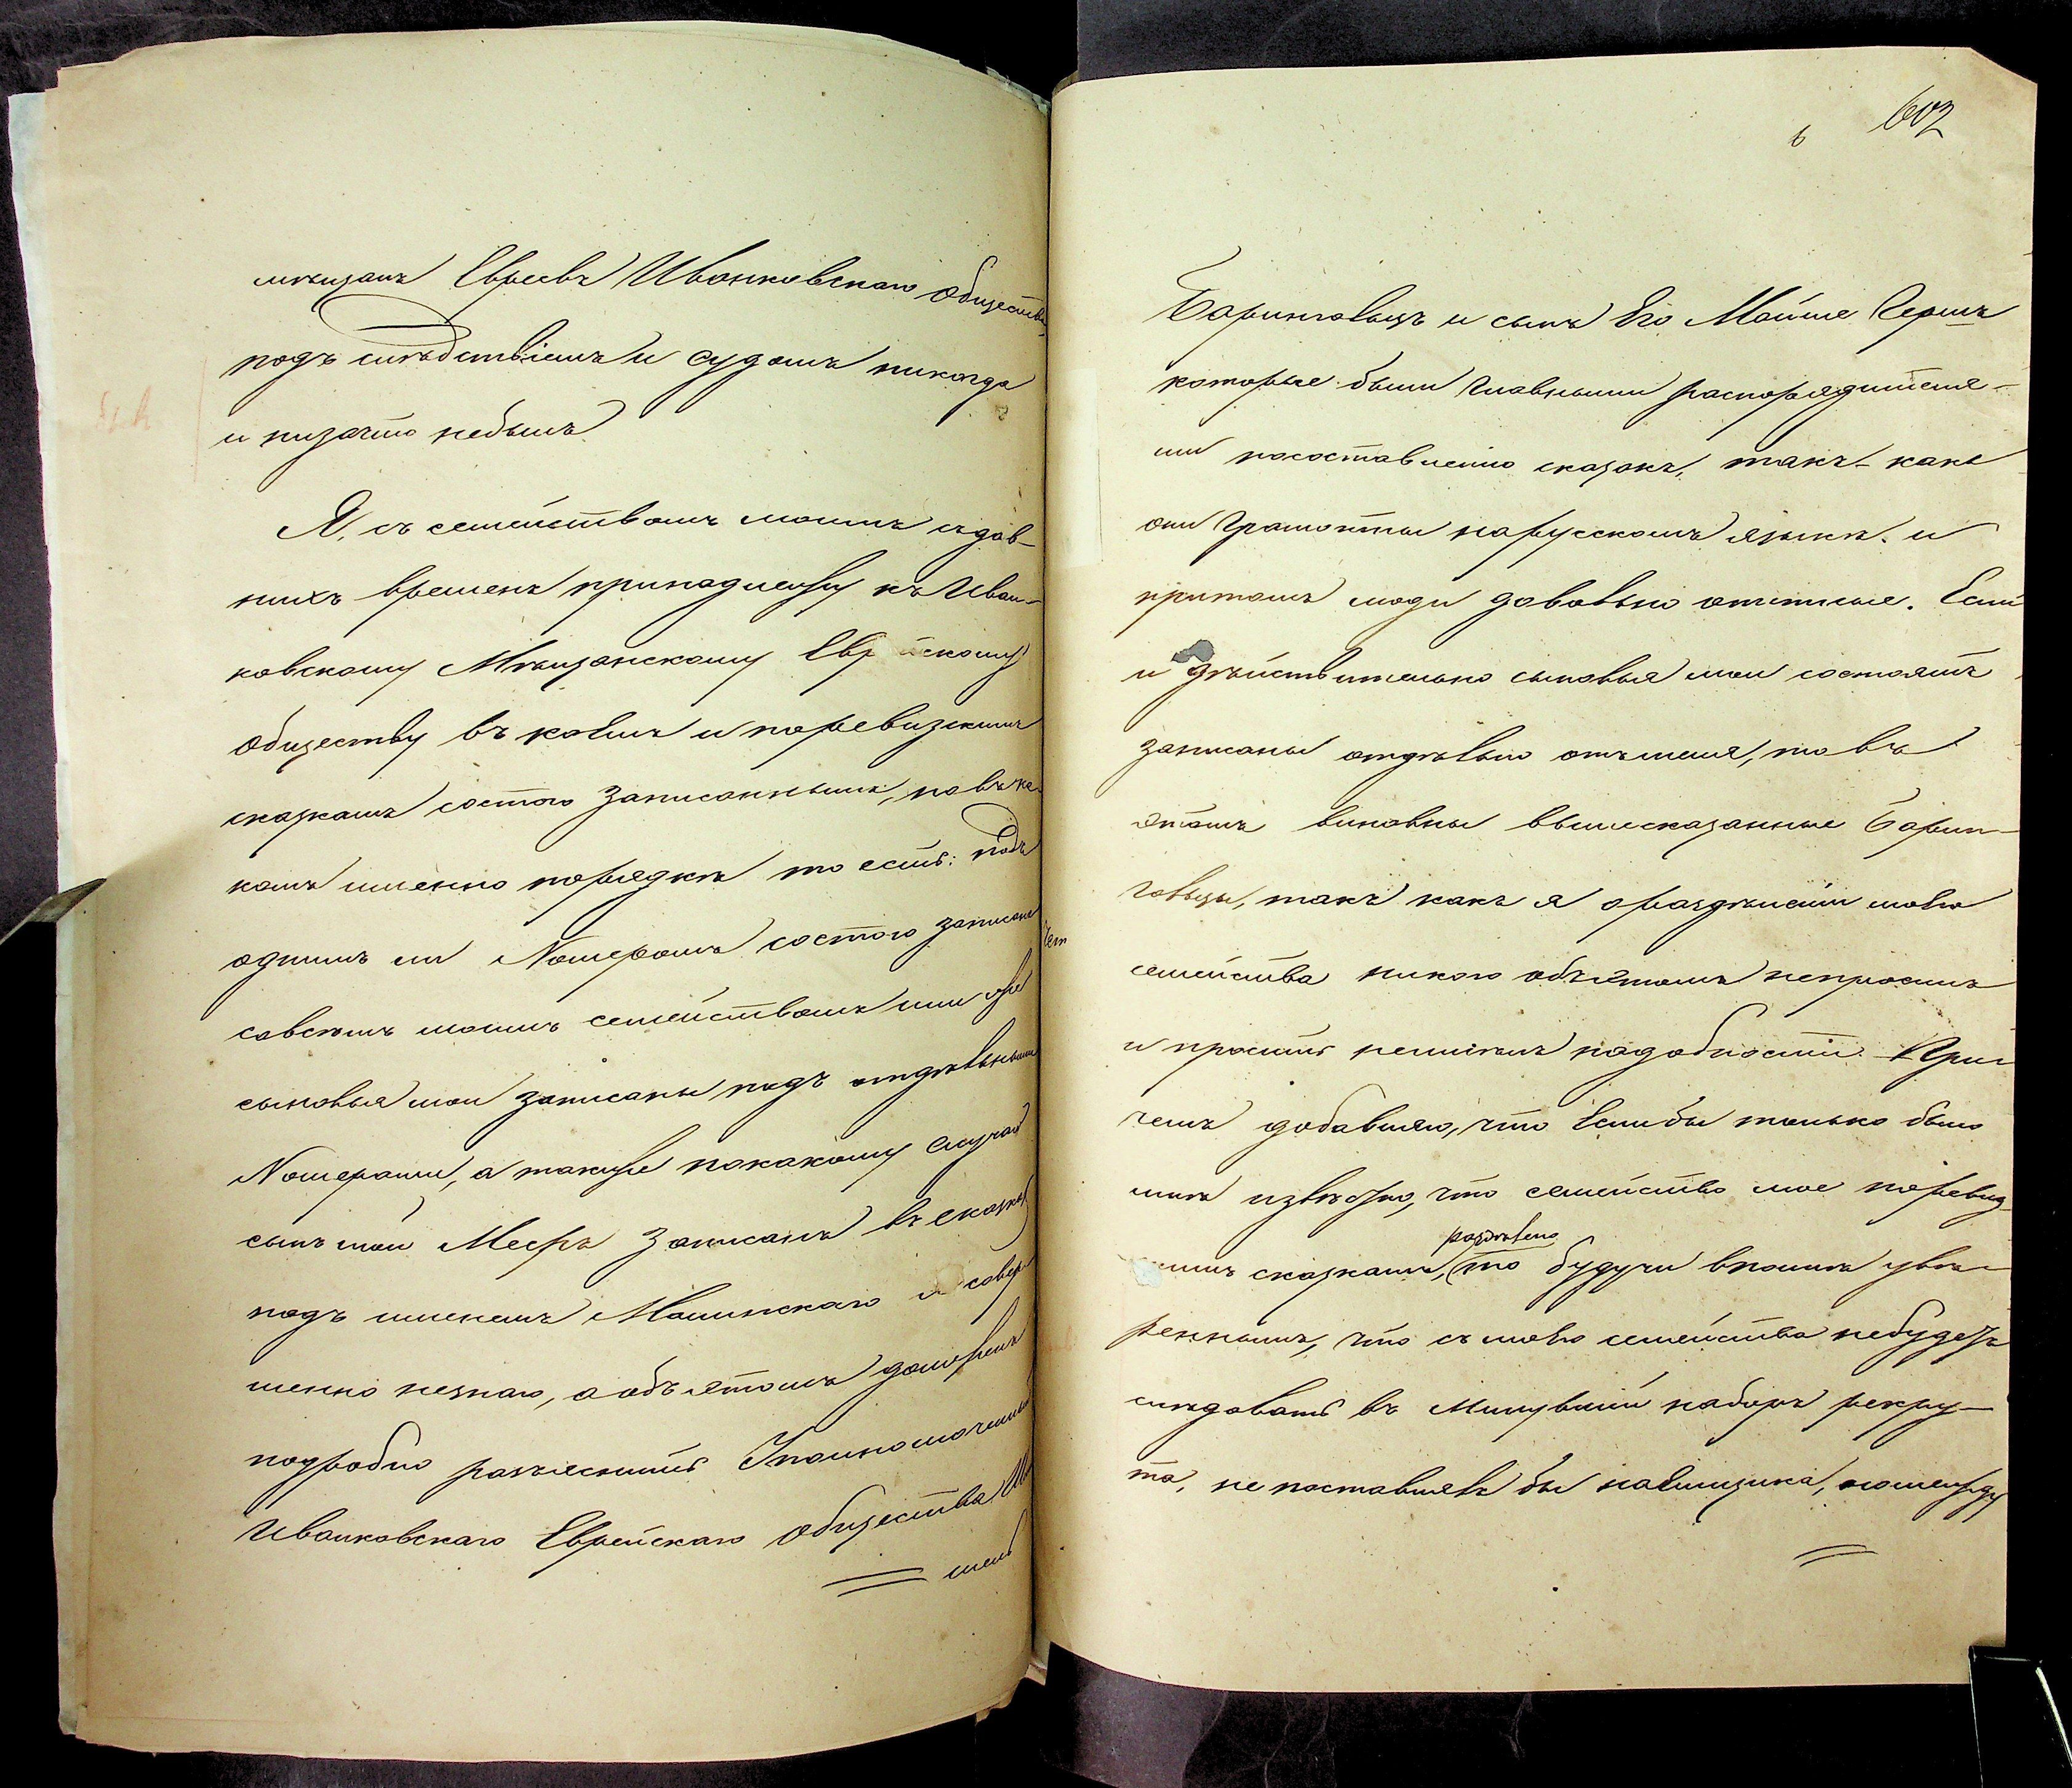 мѣщанъ Евреевъ Иванковскаго Общества
подъ слѣдствіемъ и судомъ никогда
и низачто небылъ
Я, съ семействомъ моимъ издав-
нихъ временъ принадлежу къ Иван-
ковскому Мѣщанскому Евр йскому
Обществу въ коемъ и поревизскимъ
сказкамъ состою записаннымъ, но въ ка
комъ именно порядкѣ то есть: подъ
однимъ ли Номеромъ состою записанъ
совсемъ моимъ семействомъ или же
сыновья мои записаны подъ отдѣльными
Номерами, а также покакому случаю
сынъ мой Мееръ записанъ въ сказкѣ
подъ именемъ Малинскаго я совер
шенно незнаю, а объ этомъ долженъ
подробно разъяснить Уполномоченный
Иванковскаго Еврейскаго Общества
602
6
Барингольцъ и сынъ Его Мойше Гершъ
которые были главными распорядителя-
ми посоставленію сказокъ, такъ-какъ
они грамотны нарусскомъ языкѣ. и
притомъ люди довольно опытные. Если
и дѣйствительно сыновья мои состоятъ
записаны отдѣльно отъ меня, то въ
этомъ виновны вышесказанные Барин-
гольцы, такъ какъ я ораздѣленіи моего
семейства никого объ этомъ непросилъ
и просить неимѣлъ надобности. При
чемъ добавляю, что Еслибы только было
мнѣ извѣстно, что семейство мое поревиз-
скимъ сказкамъ, раздѣлено то будучи вполнѣ увѣ-
реннымъ, что съ моего семейства небудетъ
слѣдовать въ минувшій наборъ рекру-
та, не поставлялъ бы наёмщика, помежду